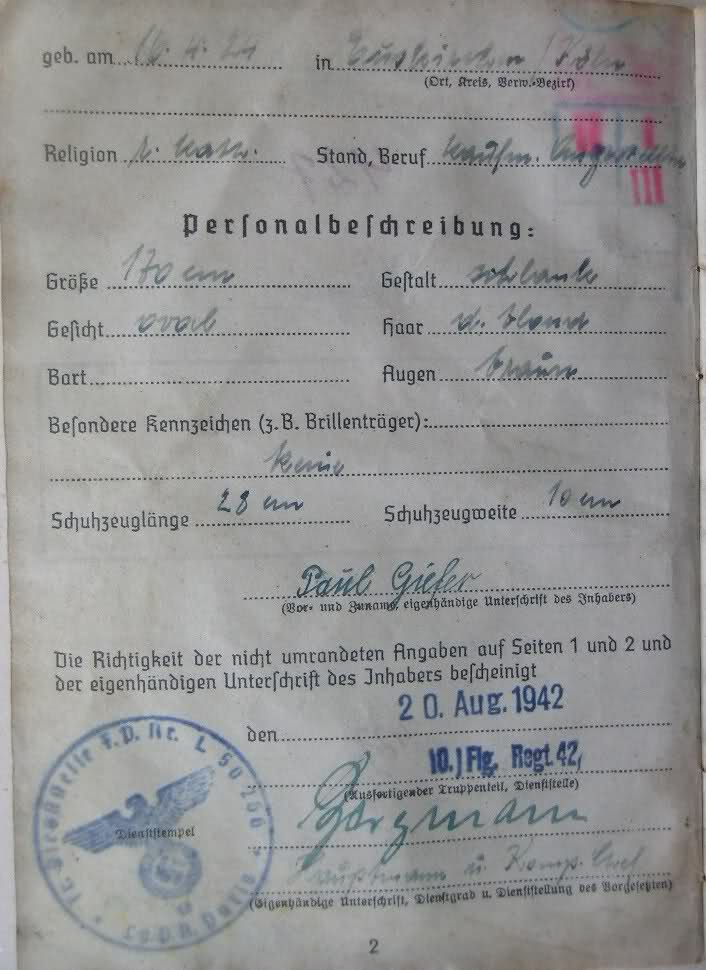 geb. am 16. 4. 24 in Euskirchen / Köln
(Ort, Kreis, Verw.-Bezirk)
Religion r. kath. Stand, Beruf kaufm. Angestellter
Personalbeschreibung:
Größe 170 cm Gestalt schlank
Gesicht oval Haar d. blond
Bart Augen braun
Besondere Kennzeichen (z.B. Brillenträger):
keine
Schuhzeuglänge 28 cm Schuhzeugweite 10 cm
Paul Giefer
(Vor- und Zuname, eigenhändige Unterschrift des Inhabers)
Die Richtigkeit der nicht umrandeten Angaben auf Seiten 1 und 2 und
der eigenhändigen Unterschrift des Inhabers bescheinigt
den 20. Aug. 1942
10.) Flg. Regt. 42,
(Ausfertigender Truppenteil, Dienststelle)
Dienststempel
Hauptmann u. Komp. Chef
(Eigenhändige Unterschrift, Dienstgrad u. Dienststellung des Vorgesetzten)
2